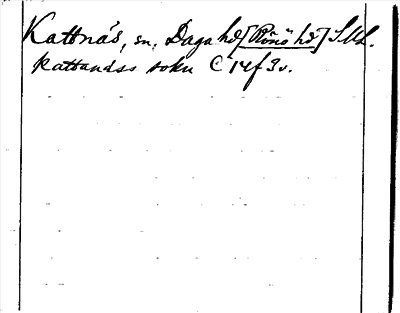 Kattnäs, sn, Daga hd [Rönö hd] SML.
Kattandss sokn C 14 f 3v.